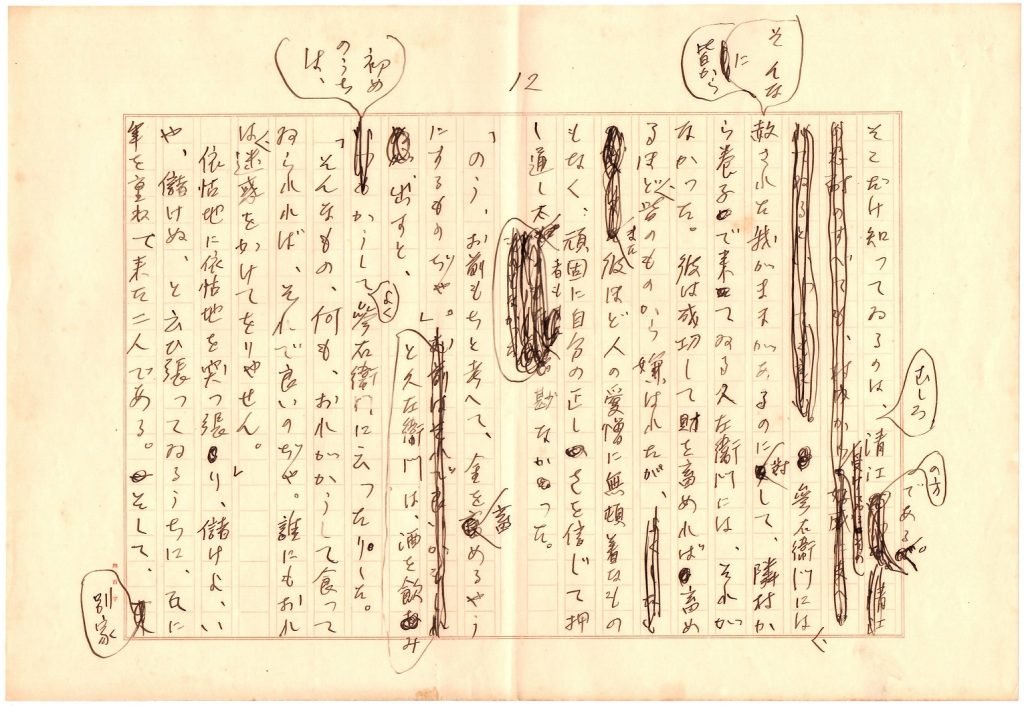 12
そこだけ知つてゐるのは、むしろ清江の方である。
參右衞門には
そんなに皆から
赦された我がままがあるのに對して、隣村か
ら養子で來てゐる久左衞門には、それが
なかつた。彼は成功して財を畜めれば畜め
るほど、皆のものから嫌はれたが、
また彼ほど人の愛憎に無頓着なもの
もなく、頑固に自分の正しさを信じて押
し通した
者も尠なかつた。
「のう、お前もちと考へて、金を畜めるやう
にするものぢや。」
と久左衞門は、酒を飲み
出すと、
初めのうちは、
かうしてよく參右衞門に云つたりした。
「そんなもの、何も、おれがかうして食つて
ゐられれば、それで良いのぢや。誰にもおれ
は迷惑をかけてをりやせん。」
依怙地に依怙地を突つ張り、儲けよ、い
や、儲けぬ、と云ひ張つてゐるうちに、互に
年を重ねて来た二人である。そして、
別家